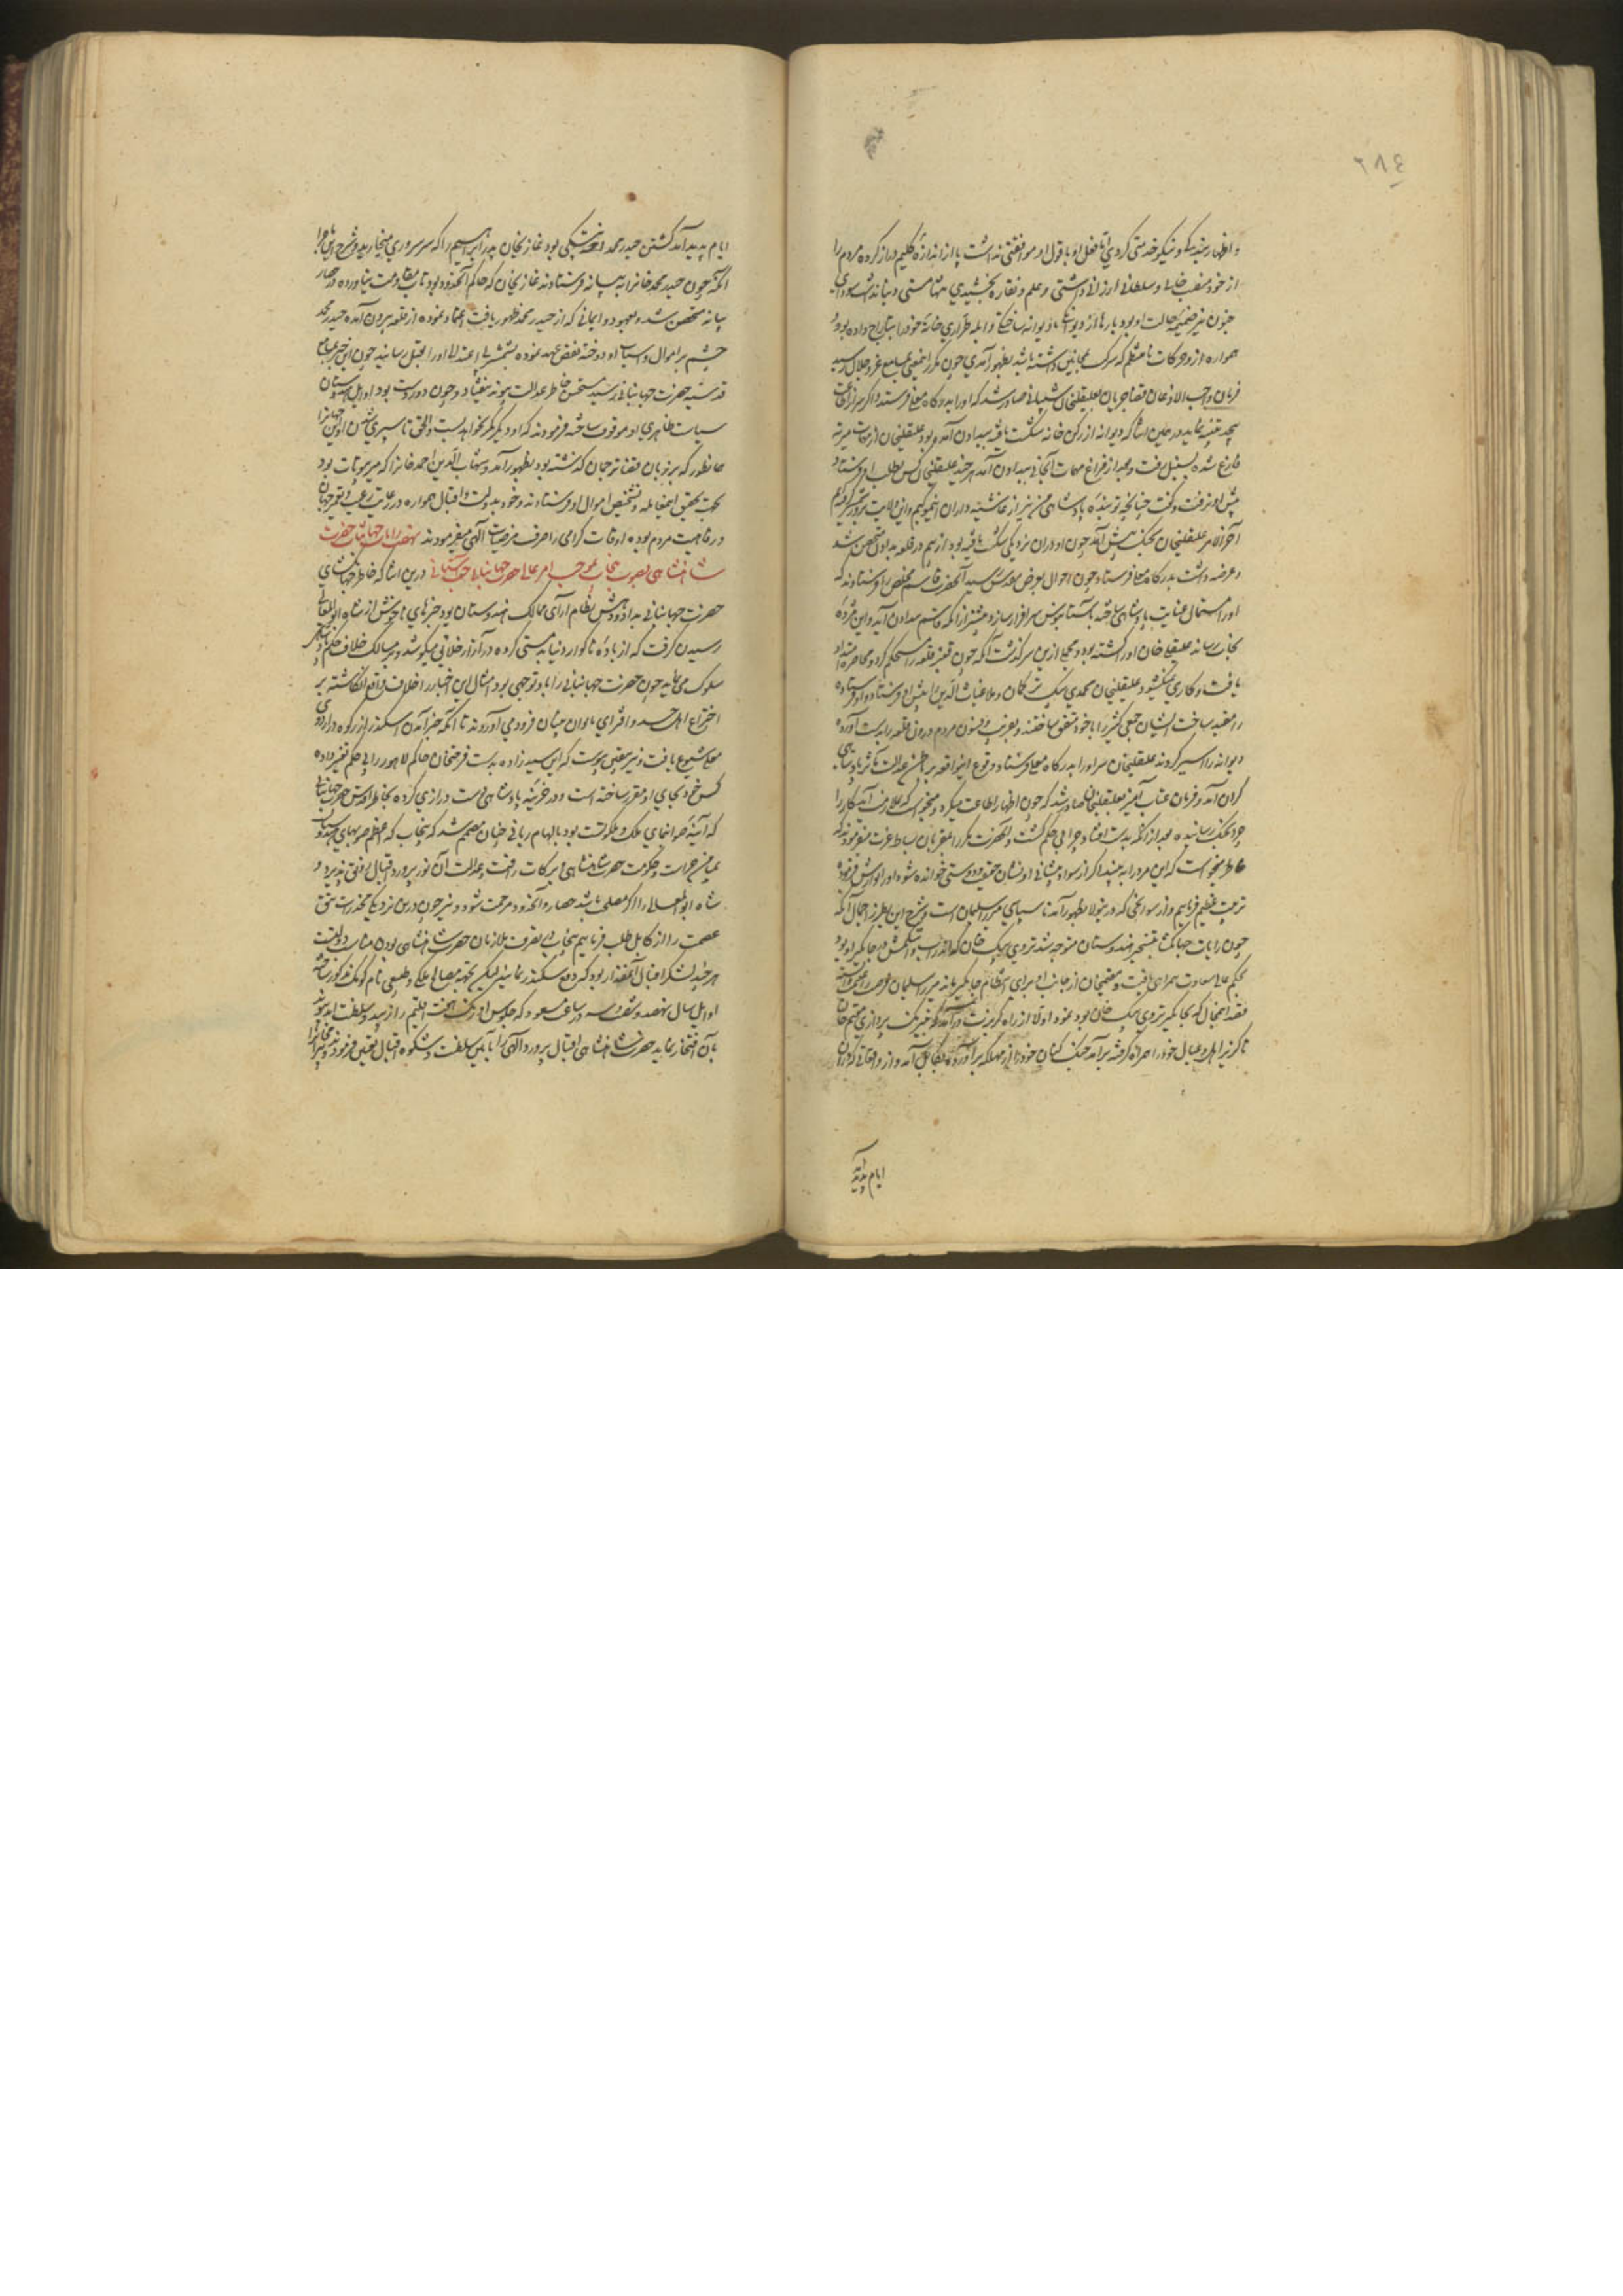 ۲۸۴
و اظهار بندگی و نیکو خدمتی کردی اما فعل او با قول او موافقتی نداشت پا از اندازه گلیم دراز کرده مردم را
از خود منصب خانی و سلطانی ارزانی داشتی و علم و نقاره بخشیدی همانا مستی دنیا
جنون نیز ضمیمه حالت او بود بارها از دیوانگی خانه خود را بتاراج داده بود و
همواره ازو حرکات نامنتظم که بظهور آمدی چون مکرر بمسامع عز و جلال رسید
فرمان واجب الاذعان قضا جریان بعلیقلیخان شیبانی صادر شد که او را بدرگاه معلی فرستد و اگر
در حین اثنا که دیوانه از رکن خان شکست یافته ببداون آمده بود علیقلیخان از مهمات میرته
فارغ شده بسنبل رفت و بعد از فراغ مهمات آنجا ببداون آمد هر چند علیقلیخان کس بطلب او فرستاد
پیش او نرفت و گفت چنانچه تو بنده پادشاهی من نیز از غاشیه داران
آخر الامر علیقلیخان بجنگ پیش آمد چون او دران نزدیکی شکست یافته بود از بیم در قلعه بداون متحصن شد
و عرضه داشت بدرگاه معلی فرستاد چون احوال بعرض مقدس رسید آنحضرت قاسم مخلص را فرستادند که
او را استمالت عنایت پادشاهی ساخته بآستانبوس سرافراز سازد پیشتر از آنکه قاسم ببداون آید و این مژده
بجان رساند علیقلی خان او را کشته بود و مجملی ازین سرگذشت آنکه چون قنبر قلعه را مستحکم کرد و محاصره امتداد
یافت و کاری نمیگشود علیقلیخان محمدی بیگ ترکمان و ملا غیاث الدین را پیش او فرستاد و او فرستاده
را مقید ساخت ایشان جمعی کثیر را با خود متفق ساختند و بفریب و فسون مردم درون قلعه را بدست آورده
دیوانه را اسیر کردند علیقلیخان سر او را بدرگاه معلی فرستاد و وقوع این واقعه بر باطن عدالت مآثر پادشاهی
گران آمد و فرمان عتاب آمیز بعلیقلیخان صادر شد که چون اظهار اطاعت میکرد و میخواست که بملازمت آید کار را
چرا بجنگ رسانید و بعد از آنکه بدست افتاد چرا بی حکم کشت و آنحضرت مکرر بمقربان بساط عزت میفرمودند که
خاطر میخواست که این مرد را به بینیم اگر از سواد پیشانی او نشان حقیقت و دوستی خوانده شود او را نوازش فرموده
تربیت عظیم فرمائیم و از سوانحی که درینولا بظهور آمد ناسپاسی میرزا سلیمان است و شرح این بطریق اجمال آنکه
چون رایات جهانگشا بتسخیر هندوستان متوجه شد تردی بیگ خان که اندراب و اشکمش در جاگیر او بود
بحکم عالی سعادت همراهی یافت و مقیم خان از جانب او برای انتظام جاگیر ماند میرزا سلیمان فرصت را غنیمت دانسته
قصد آنمحال که بجاگیر تردی بیگ خان بود نموده اولا از راه گربزت درآمد
ناگزیر اهل و عیال خود را همراه گرفته برآمد جنگ کنان خود را از مهلکه برآورده بکابل آمد و از وقایعی که دران
ایام پدید آمد
ایام پدید آمد کشتن حیدر محمد اخته بیگی بود غازیخان پدر ابراهیم را که سر سروری میخارید و شرح این ماجرا
آنکه چون حیدر محمد خان را به بیانه فرستادند غازیخان که حاکم آنحدود بود تاب مقاومت نیاورده در حصار
بیانه متحصن شد و بعهود و ایمانی که از حیدر محمد ظهور یافت اعتماد نموده از قلعه بیرون آمد حیدر محمد
چشم بر اموال و اسباب او دوخته نقض عهد نموده بشمشیر بی اعتدالی او را بقتل رسانید چون این خبر بمسامع
قدسیه حضرت جهانبانی رسید مستحسن خاطر عدالت پیوند نیفتاد و چون دوردست بود و اوایل هندوستان
سیاست ظاهری او موقوف ساخته فرمودند که او دیگر کمر نخواهد بست و الحق تا سپری شدن
همانطور که بر زبان قضا ترجمان گذشته بود بظهور آمد و شهاب الدین احمد خان را که میر بیوتات بود
بجهت تحقیق این معامله و تشخیص اموال او فرستادند و خود بدولت و اقبال همواره در رعایت رعیت و تعمیر جهان
و رفاهیت مردم بوده اوقات گرامی را صرف مرضیات الهی میفرمودند نهضت رایات جهانتاب حضرت
شاهنشاهی بصوب پنجاب بموجب امر عالی حضرت جهانبانی جنت آشیانی درین اثنا که خاطر جهانگشای
حضرت جهانبانی به داد و دهش نظام آرای ممالک هندوستان بود خبرهای ناخوش از شاه ابوالمعالی
رسیدن گرفت که از باده ناگوار دنیا بدمستی کرده در آزار خلایق میکوشد و بر مسالک خلاف حکم
سلوک مینماید چون حضرت جهانبانی را باو توجهی بود امثال این اخبار را خلاف واقع انگاشته بر
اختراع اهل حسد و افترای فرود می آوردند تا آنکه خبر آمدن اسکندر از کوه در اردوی
معلی شیوع یافت و نیز بیقین پیوست که این سیدزاده بدمست فرحتخان حاکم لاهور را بی حکم تغییر داده
کس خود بجای او مقرر ساخته است و در خزینه پادشاهی دست درازی کرده بخاطر اقدس حضرت جهانبانی
که آئینه صورنمای ملک و ملکوتست بود بالهام ربانی چنان مصمم شد که پنجاب که اعظم صوبهای هندوستان
بمیامن حراست و حکومت حضرت شاهنشاهی و برکات رأفت و عدالت آن نور پرورد اقبال رونق پذیرد و
شاه ابوالمعالی را اگر مصلحت باشد حصار و آنحدود مرحمت شود و نیز چون درین نزدیکی مخدرات تتق
عصمت را از کابل طلب فرمائیم پنجاب بتصرف ملازمان حضرت شاهنشاهی بودن مناسب دولتست
هر چند لشکر اقبال آنقدر بود که دفع اسکندر نماید لیکن بجهت مصالح ملکی
اوایل سال نهصد و شصت و سه در ساعت مسعود که جلوس اورنگ هفت اقلیم را زیبد و سلطنت ابد پیوند
بآن افتخار نماید حضرت شاهنشاهی اقبال پرورد الهی را باین سلطنت و شکوه اقبال تعین فرمودند